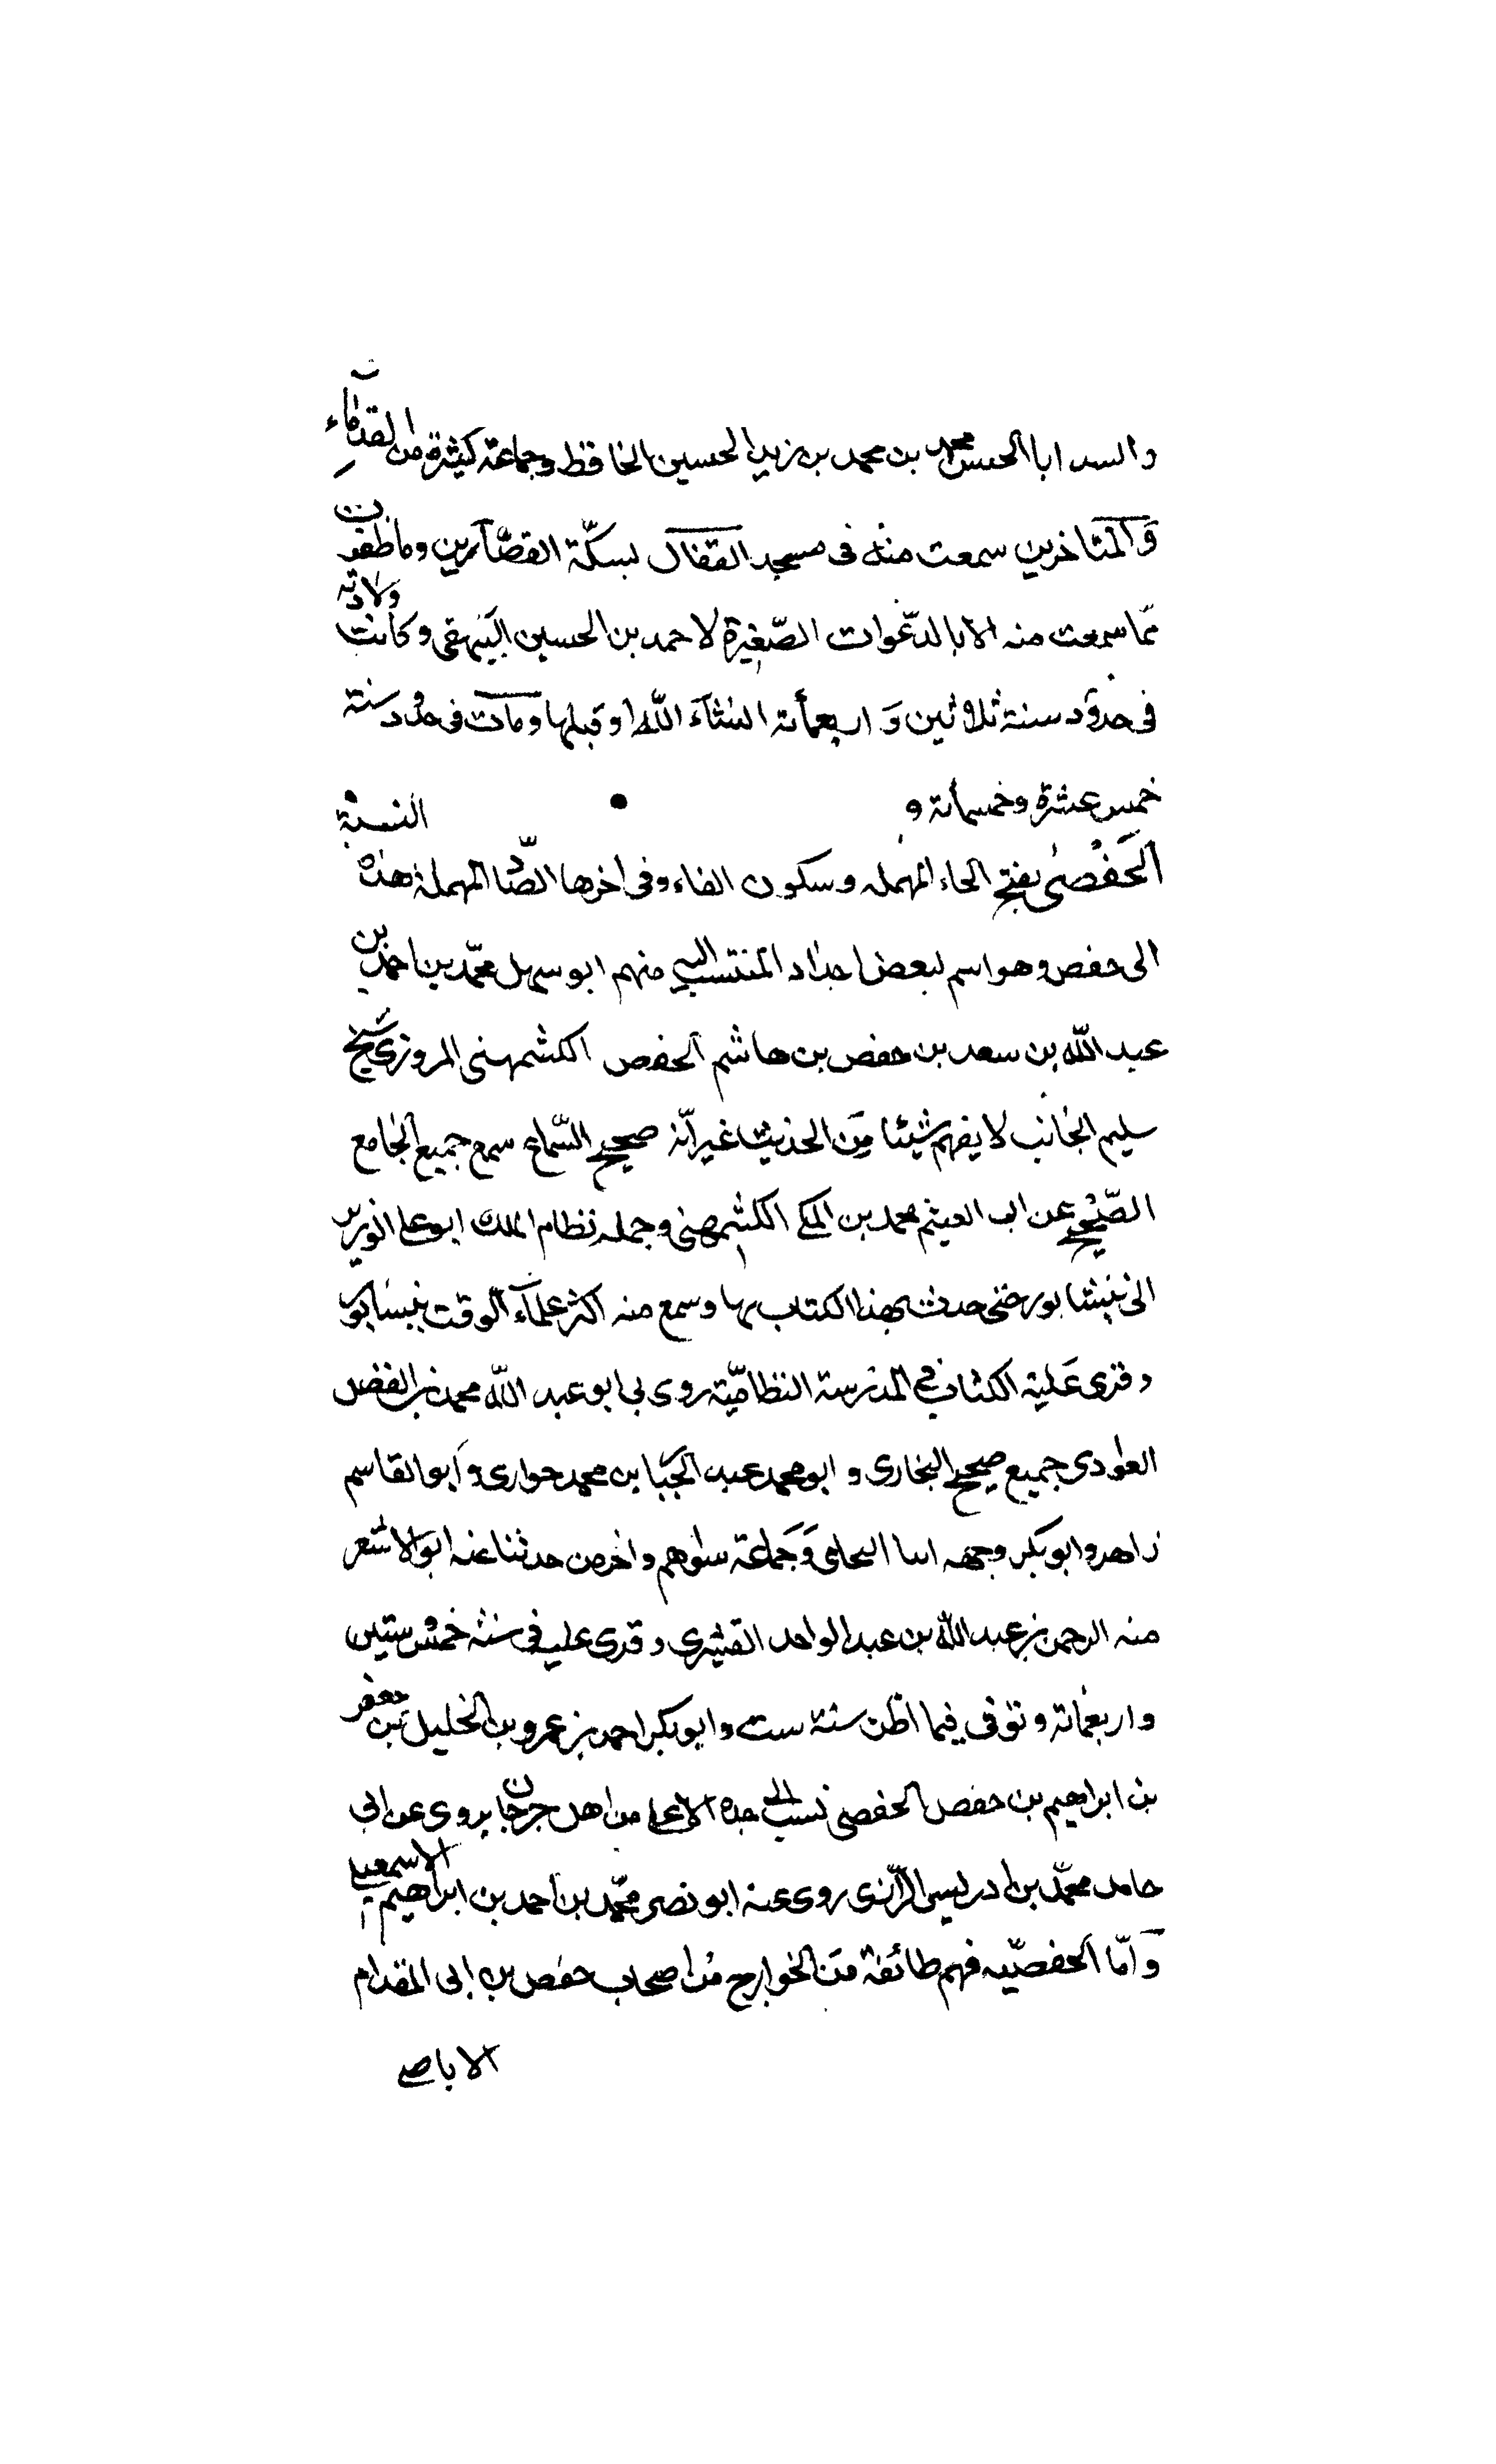 والسد ابا الحسن محمد بن محمد بن زيد الحسين الحافظ وجماعة كثيرة من القدماء
والمتاخرين سمعت منه فى مسجد القفال بسكّة القصّارين وما ظفرت
ممّا سمعت منه الا بالدّعوات الصّغيرة لاحمد بن الحسين البيهقى وكانت ولادته
فى حدود سنة ثلاثين و اربعمأته انشآء اللّه او قبلها ومات فى حدود سنة
خمس عشرة وخمسمأته و
الحَفْصى بفتح الحاء المهمله وسكون الفاء وفى اخرها الصّاد المهملة هذه النسبة
الى حفص وهو اسم لبعض اجداد المنتسب اليه منهم ابو سهل محمّد بن احمد بن
عبد اللّه بن سعد بن حفص بن هاشم الحفص الكشمهنى المروزى شيخ
سليم الجانب لا يفهم شيئا من الحديث غير انّه صحيح السّماع سمع جميع الجامع
الصّحيح عن اب العيثم محمد بن المكى الكشمهنى وحمله نظام الملك ابو على الوزير
الى نيشابور حتى حدث بهذا الكتاب بها وسمع منه اكثر علمآء الوقت بنيسابور
و قرى عليه الكتاب فى المدرسة النظاميّة روى لى ابو عبد اللّه محمد بن الفضل
العاودى جميع صحيح البخارى و ابو محمد عبد الجبا بن محمد حوارى و ابو القاسم
زاهد وابو بكر وجهه ابنا الشحامى وجماعة سواهم واخر من حدثنا عنه ابو الاشعر
منه الرحمن بن عبد اللّه بن عبد الواحد القشيرى و قرى عليه فى سنة خمس وستين
واربعمائة وتوفى فيما اظن سنة ست وابو بكر احمد بن عمرو بن الخليل بن جعفر
بن ابراهيم بن حفص الحفصى نسب الى جده الاعلى من اهل جرجان يروى عن ابى
حامد محمّد بن ادريس الرّازى روى عنه ابو نصر محمّد بن احمد بن ابراهيم الاسمعيلى
وامّا الحفصيّه فهم طائفة من الخوارج من اصحاب حفص بن ابى المقدام
الاباصى